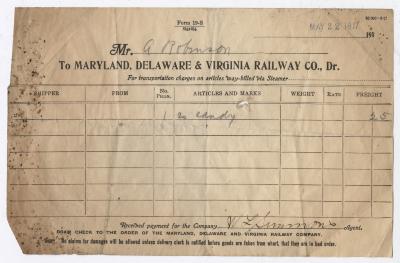 Form 19-B
MAY 22 1917 191
Mr. A Robinson
To MARYLAND, DELAWARE & VIRGINIA RAILWAY CO., Dr.
For transportation charges on articles way-billed via Steamer
SHIPPER FROM No. PKGS. ARTICLES AND MARKS WEIGHT RATE FREIGHT
1 candy 25
Received payment for the Company Agent.
DRAW CHECK TO THE ORDER OF THE MARYLAND, DELAWARE AND VIRGINIA RAILWAY COMPANY.
No claims for damages will be allowed unless delivery clerk is notified before goods are taken from wharf, that they are in bad order.